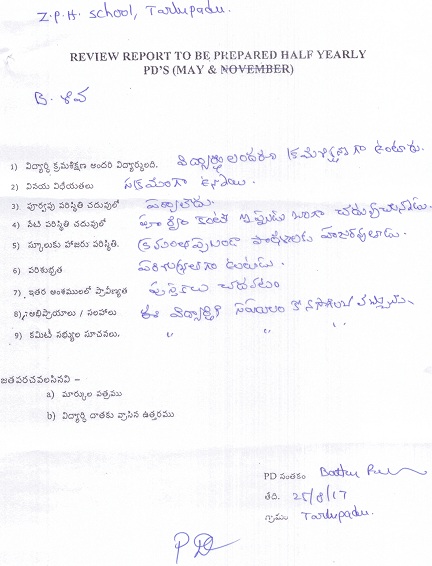 Z.P.H. School, Tarlupadu.
REVIEW REPORT TO BE PREPARED HALF YEARLY
PD'S (MAY & NOVEMBER)
B. శివ
1) విద్యార్థి క్రమశిక్షణ అందరి విద్యార్థులది. విద్యార్థులందరూ క్రమశిక్షణ గా ఉంటారు.
2) వినయ విధేయతలు సక్రమంగా ఉన్నాయి.
3) పూర్వపు పరిస్థితి చదువులో పర్వాలేదు.
4) నేటి పరిస్థితి చదువులో పూర్వం కంటే ఇప్పుడు బాగా చదువుచున్నాడు.
5) స్కూలుకు హాజరు పరిస్థితి. క్రమం తప్పకుండా పాఠశాలకు హాజరవుతాడు.
6) పరిశుభ్రత పరిశుభ్రంగా ఉంటాడు.
7) ఇతర అంశములలో ప్రావీణ్యత పుస్తకాలు చదవటం
8) అభిప్రాయాలు / సలహాలు ఈ విద్యార్థికి సహాయం కొనసాగించ వచ్చును.
9) కమిటీ సభ్యుల సూచనలు. " " "
జతపరచవలసినవి –
a) మార్కుల పత్రము
b) విద్యార్థి దాతకు వ్రాసిన ఉత్తరము
PD సంతకం
తేది. 25/8/17
గ్రామం Tarlupadu.
PD